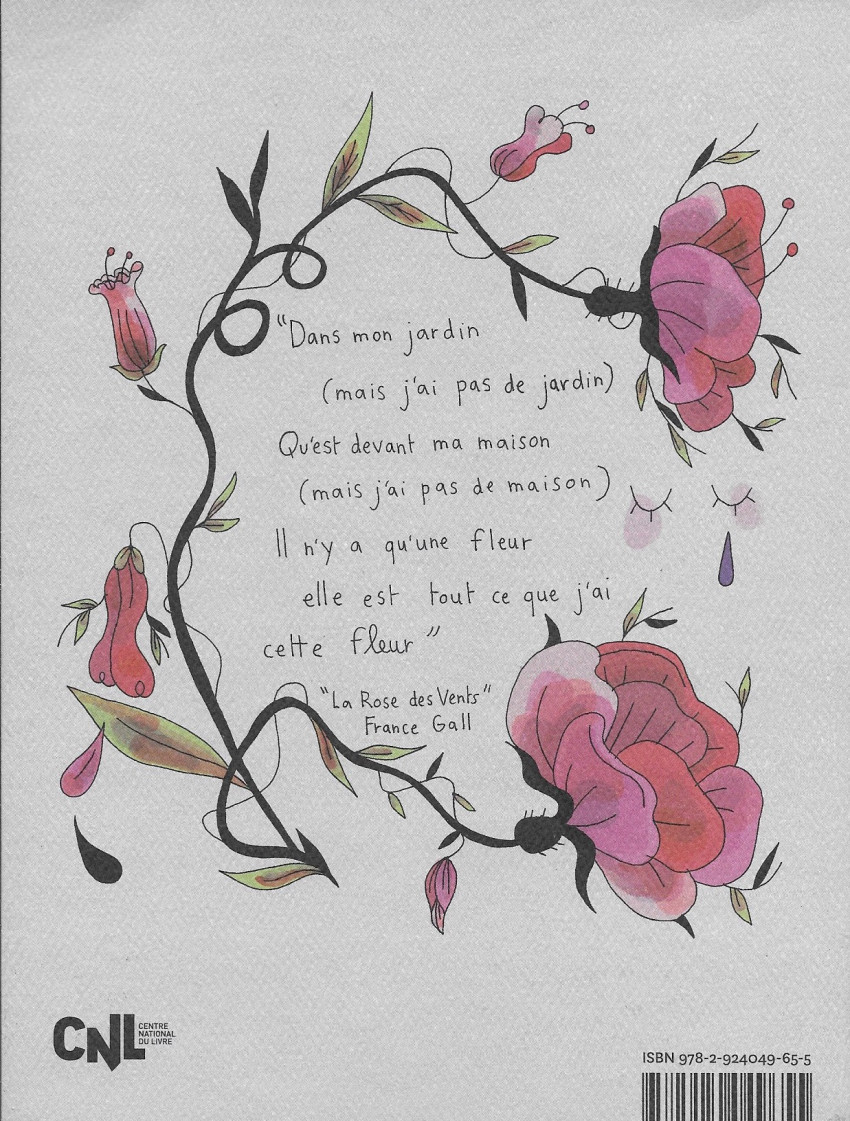 "Dans mon jardin
(mais j'ai pas de jardin)
Qu'est devant ma maison
(mais j'ai pas de maison)
Il n'y a qu'une fleur
elle est tout ce que j'ai
cette fleur"
"La Rose des Vents"
France Gall
CNL
CENTRE
NATIONAL
DU LIVRE
ISBN 978-2-924049-65-5